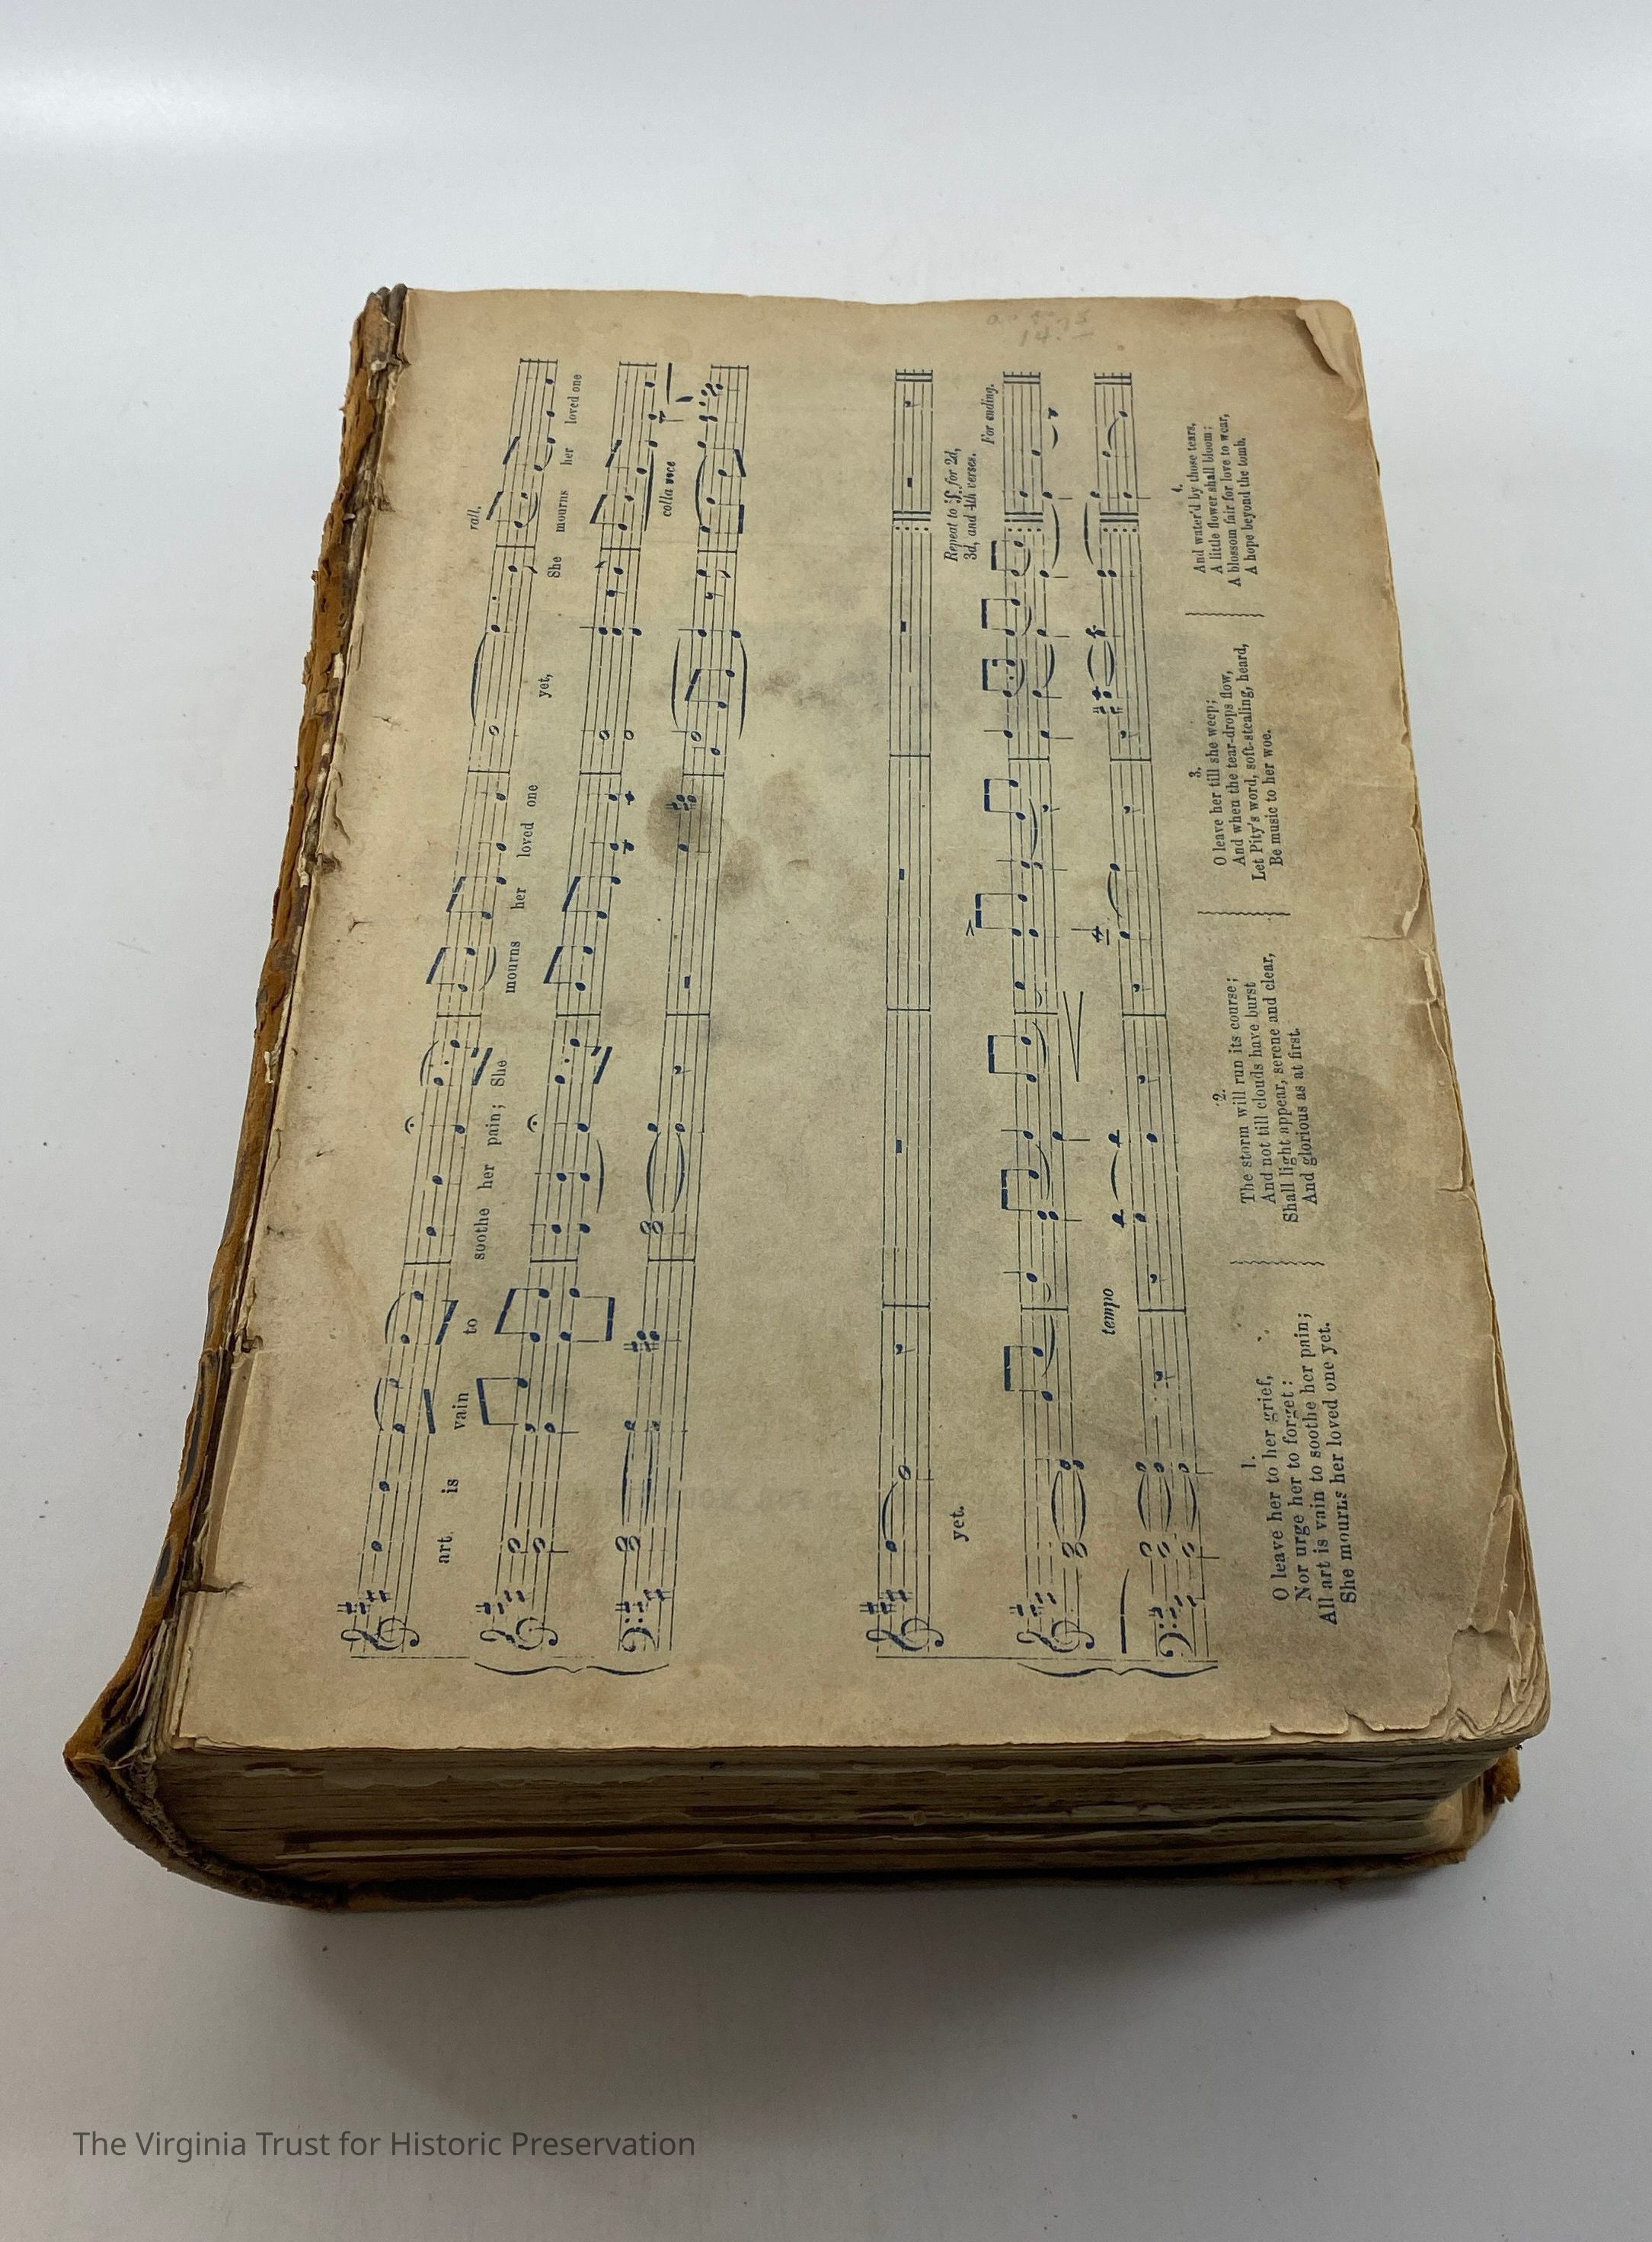 rall.
art is vain to soothe her pain; She mourns her loved one yet, She mourns her loved one
colla voce
yet.
Repeat to 𝄋 for 2d,
3d, and 4th verses.
For ending.
tempo
1.
O leave her to her grief,
Nor urge her to forget:
All art is vain to soothe her pain;
She mourns her loved one yet.
2.
The storm will run its course;
And not till clouds have burst
Shall light appear, serene and clear,
And glorious as at first.
3.
O leave her till she weep;
And when the tear-drops flow,
Let Pity's word, soft-stealing, heard,
Be music to her woe.
4.
And water'd by those tears,
A little flower shall bloom;
A blossom fair for love to wear,
A hope beyond the tomb.
The Virginia Trust for Historic Preservation